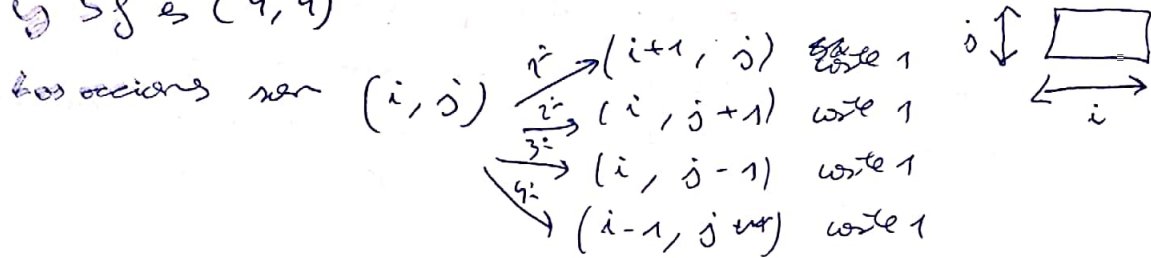 y Sf es (4, 4)
Las acciones son (i, j) 1º (i+1, j) coste 1
2º (i, j+1) coste 1
3º (i, j-1) coste 1
4º (i-1, j) coste 1
j
i